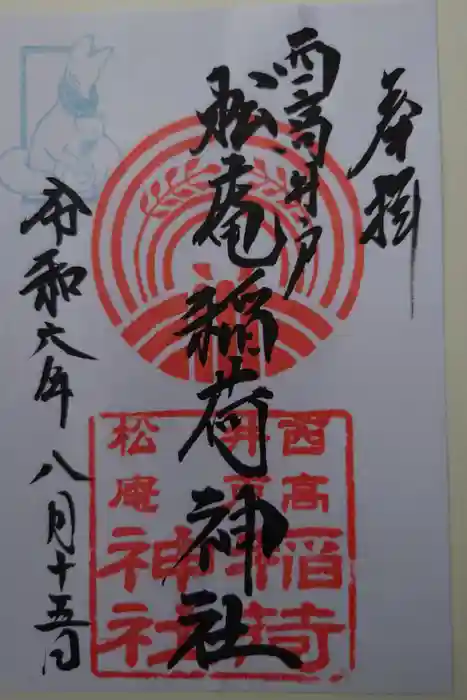 奉拝
西高井戸
松庵稲荷神社
令和六年八月十五日
西高
井戸
松庵
稲荷
神社